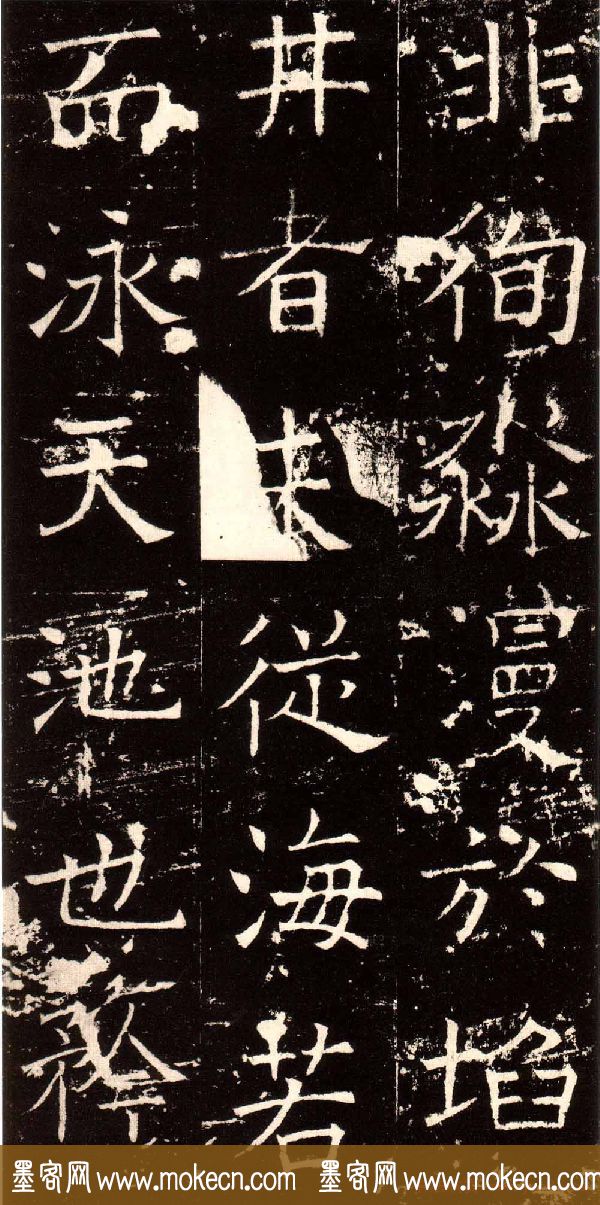 非徇淼漫於埳
井者未從海若
而泳天池也
墨客网 www.mokecn.com 墨客网 www.mokecn.com